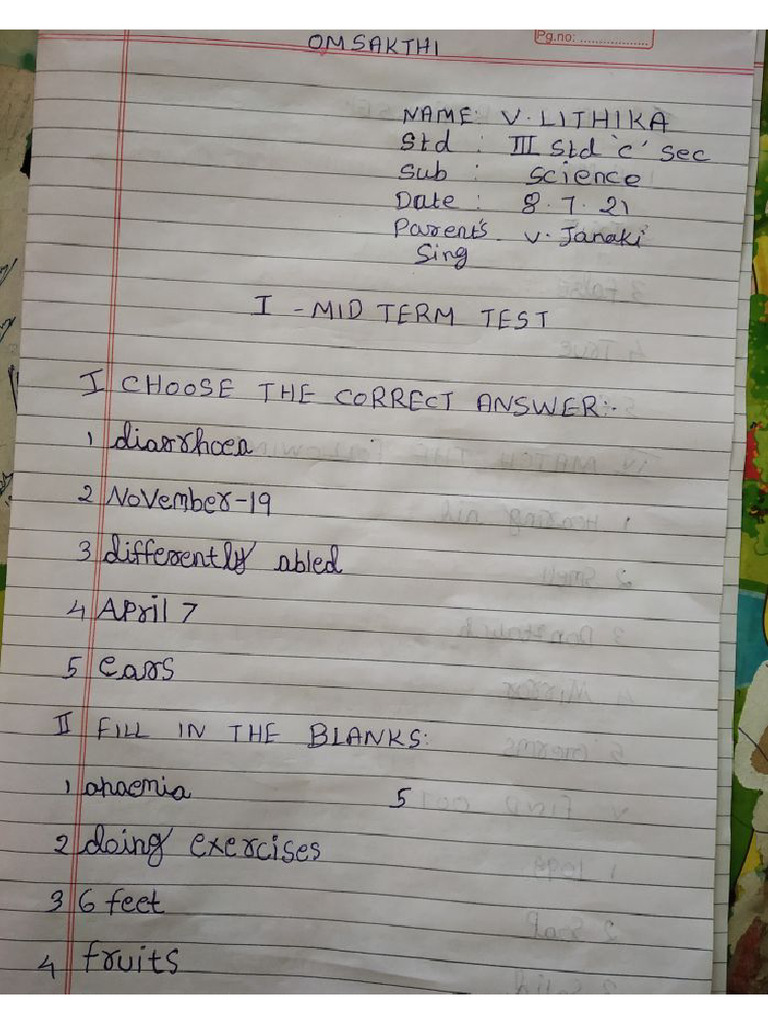 OMSAKTHI
Pg.no: ..................
NAME: V. LITHIKA
Std : III Std 'c' sec
Sub : Science
Date : 8.7.21
Parent's V. Janaki
Sing
I - MID TERM TEST
I CHOOSE THE CORRECT ANSWER:-
1 diarrhoea
2 November-19
3 differently abled
4 April 7
5 ears
II FILL IN THE BLANKS:
1 anaemia 5
2 doing exercises
3 6 feet
4 fruits